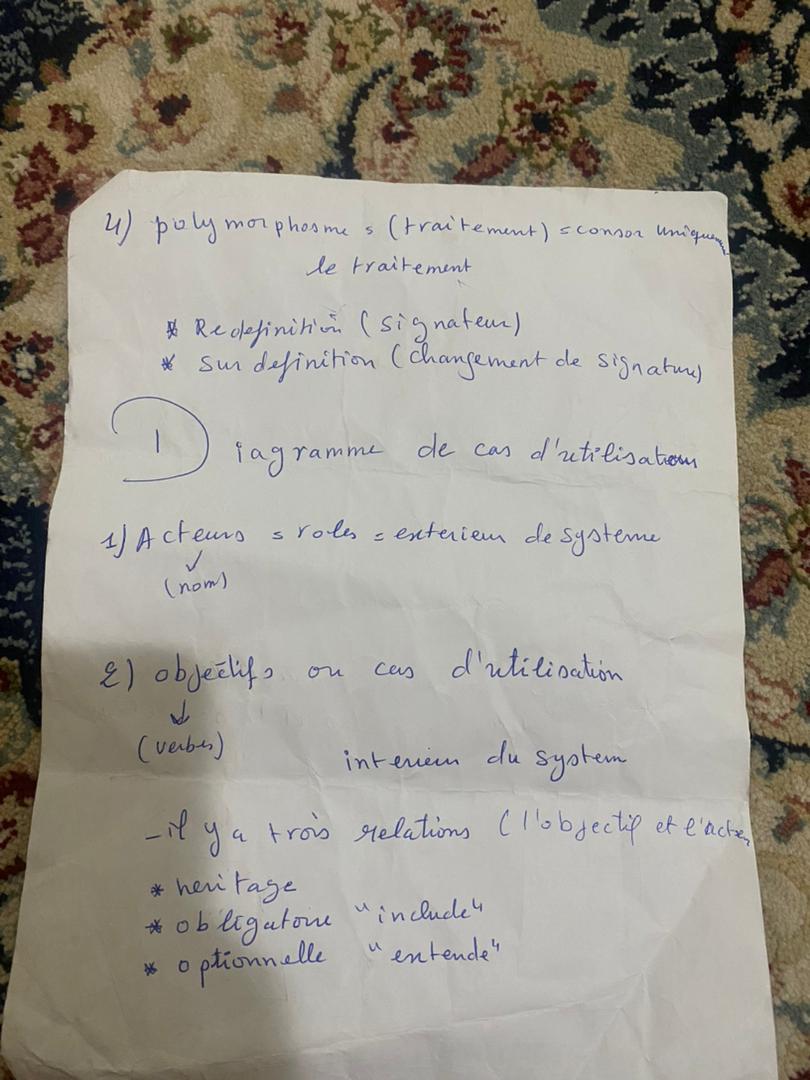 4) polymorphosme = (traitement) = consor uniquem
le traitement
* Redefinition (signateur)
* Sur definition (changement de signature)
Diagramme de cas d'utilisation
1) Acteurs = roles = exterieur de systeme
(nom)
2) objectifs ou cas d'utilisation
(verbes)
interieur du system
- il y a trois relations (l'objectif et l'acteu
* heritage
* obligatoire "include"
* optionnelle "extende"